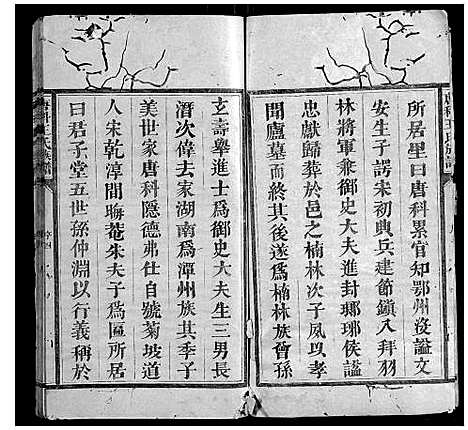 唐科王氏族譜
所居里曰唐科累官知鄂州沒謚文
安生子諤宋初典兵建節鎮入拜羽
林將軍兼御史大夫進封瑯琊侯謚
忠獻歸葬於邑之楠林次子夙以孝
聞廬墓而終其後遂爲楠林族曾孫
玄壽舉進士爲御史大夫生三男長
潛次偉去家湖南爲潭州族其季子
美世家唐科隱德弗仕自號菊坡道
人宋乾淳間晦菴朱夫子爲匾所居
曰君子堂五世孫仲淵以行義稱於
唐科王氏族譜